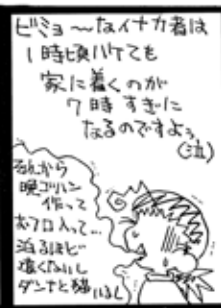 ビミョ〜なイナカ者は
1時頃ハケても
家に着くのが
7時すぎに
なるのですよぅ
(泣)
それから
晩ゴハン
作って
おフロ入って…
泊るほど
遠くないし
ダンナと猫いるし